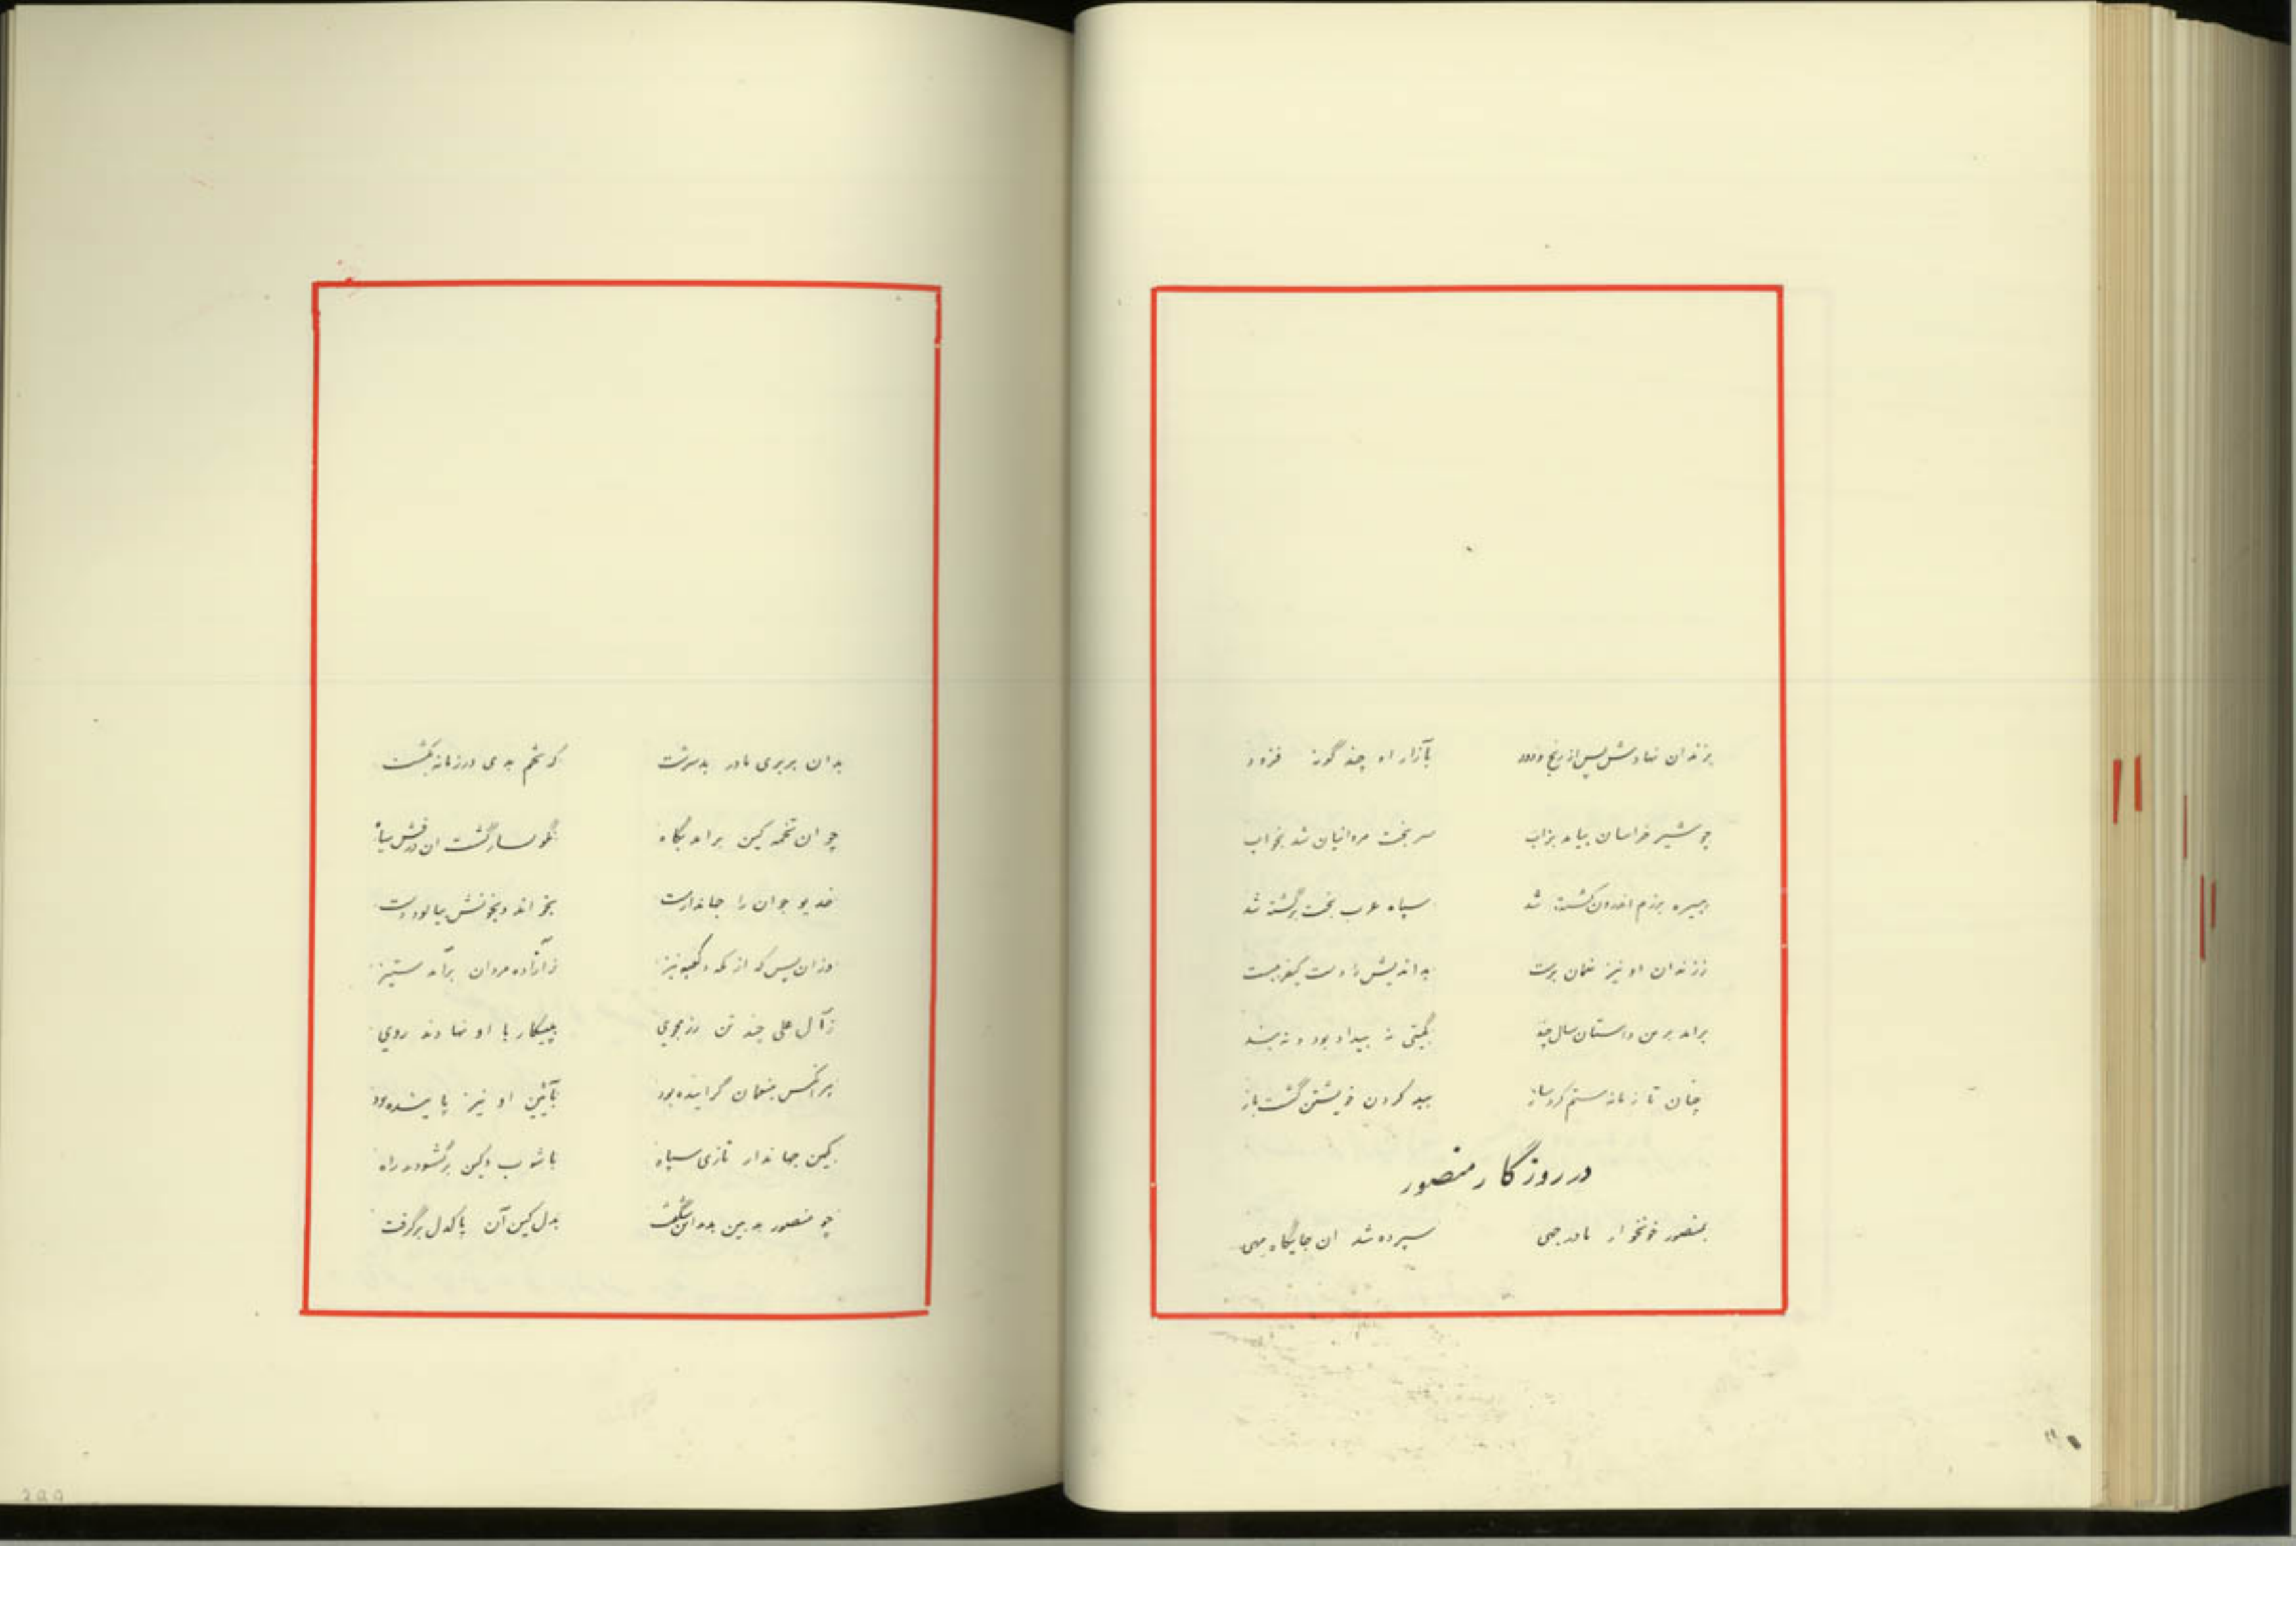 بزندان نهادش پس از رنج و درد بآزار او چند گونه فزود
چو شیر خراسان بیامد بزاب سر بخت مروانیان شد بخواب
هبیره برزم اندرون کشته شد سپاه عرب بخت برگشته شد
ز زندان او نیز نعمان برست بداندیش را دست کیفر ببست
براند برین داستان سال چند بگیتی نه بیداد بود و نه بند
چنان تا زمانه ستم کرد ساز ببد کردن خویشتن گشت باز
در روزگار منصور
بمنصور خونخوار مادر جهی سپرده شد ان جایگاه مهی
بدان بربری مادر بدسرشت که تخم بدی در زمانه بکشت
چو ان تخمه کین برامد بگاه نگوسار گشت ان درفش سیاه
خدیو جوان را جاندارست بخواند و بخونش بیالود دست
وزان پس که از مکه و کعبه نیز ز آزاده مردان برآمد ستیز
ز آل علی چند تن رزمجوی به پیکار با او نهادند روی
بر انکس بنعمان گراینده بود بآئین او نیز پاینده بود
بکین جهاندار تازی سپاه باشوب و کین برگشودند راه
چو منصور بدبین بد ان شگفت بدل کین آن پاکدل برگرفت
299